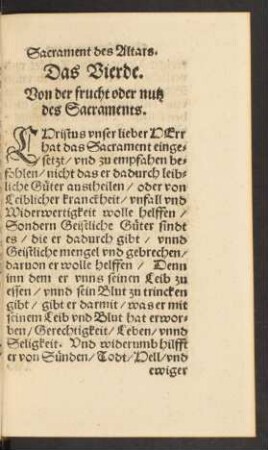 Sacrament des Altars.
Das Vierde.
Von der frucht oder nutz
des Sacraments.
CHristus vnser lieber HErr
hat das Sacrament einge-
setzt/ vnd zu empfahen be-
fohlen/ nicht das er dadurch leib-
liche Güter austheilen/ oder von
Leiblicher kranckheit/ vnfall vnd
Widerwertigkeit wolle helffen/
Sondern Geistliche Güter sindt
es/ die er dadurch gibt/ vnnd
Geistliche mengel vnd gebrechen/
daruon er wolle helffen/ Denn
inn dem er vnns seinen Leib zu
essen/ vnnd sein Blut zu trincken
gibt/ gibt er darmit/ was er mit
seinem Leib vnd Blut hat erwor-
ben/ Gerechtigkeit/ Leben/ vnnd
Seligkeit. Vnd widerumb hilfft
er von Sünden/ Todt/ Hell/ vnd
ewiger